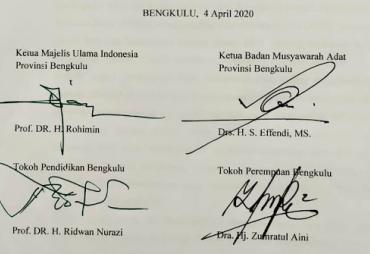 BENGKULU, 4 April 2020
Ketua Majelis Ulama Indonesia
Provinsi Bengkulu
Prof. DR. H. Rohimin
Ketua Badan Musyawarah Adat
Provinsi Bengkulu
Drs. H. S. Effendi, MS.
Tokoh Pendidikan Bengkulu
Prof. DR. H. Ridwan Nurazi
Tokoh Perempuan Bengkulu
Dra. Hj. Zumratul Aini